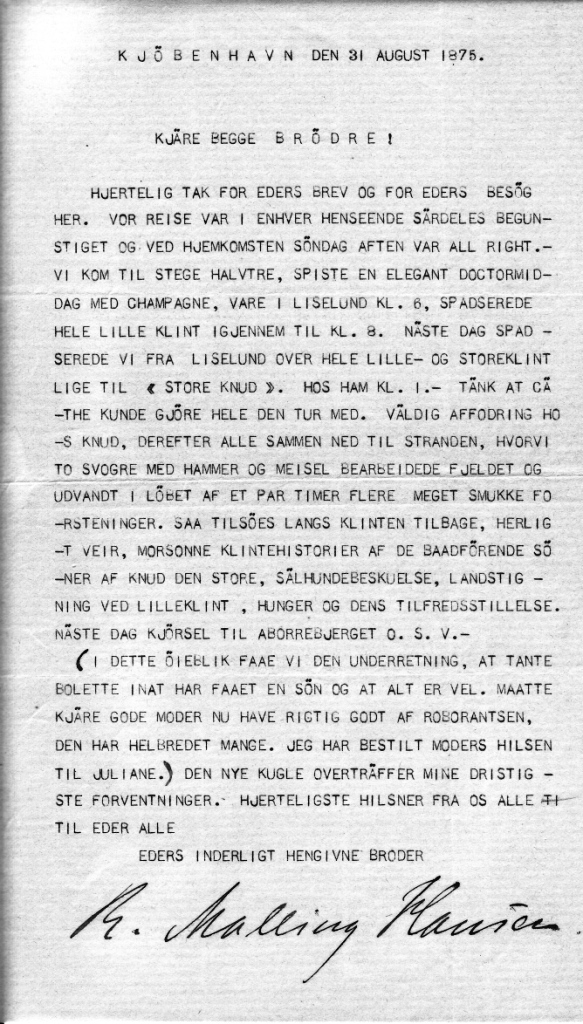 KJÖBENHAVN DEN 31 AUGUST 1875.
KJÄRE BEGGE BRÖDRE!
HJERTELIG TAK FOR EDERS BREV OG FOR EDERS BESÖG
HER. VOR REISE VAR I ENHVER HENSEENDE SÄRDELES BEGUN-
STIGET OG VED HJEMKOMSTEN SÖNDAG AFTEN VAR ALL RIGHT.-
VI KOM TIL STEGE HALVTRE, SPISTE EN ELEGANT DOCTORMID-
DAG MED CHAMPAGNE, VARE I LISELUND KL. 6, SPADSEREDE
HELE LILLE KLINT IGJENNEM TIL KL. 8. NÄSTE DAG SPAD -
SEREDE VI FRA LISELUND OVER HELE LILLE- OG STOREKLINT
LIGE TIL « STORE KNUD ». HOS HAM KL. 1.- TÄNK AT CÄ
-THE KUNDE GJÖRE HELE DEN TUR MED. VÄLDIG AFFODRING HO
-S KNUD, DEREFTER ALLE SAMMEN NED TIL STRANDEN, HVORVI
TO SVOGRE MED HAMMER OG MEISEL BEARBEIDEDE FJELDET OG
UDVANDT I LÖBET AF ET PAR TIMER FLERE MEGET SMUKKE FO
-RSTENINGER. SAA TILSÖES LANGS KLINTEN TILBAGE, HERLIG
-T VEIR, MORSONNE KLINTEHISTORIER AF DE BAADFÖRENDE SÖ
-NER AF KNUD DEN STORE, SÄLHUNDEBESKUELSE, LANDSTIG -
NING VED LILLEKLINT , HUNGER OG DENS TILFREDSSTILLELSE.
NÄSTE DAG KJÖRSEL TIL ABORREBJERGET O. S. V.-
(I DETTE ÖIEBLIK FAAE VI DEN UNDERRETNING, AT TANTE
BOLETTE INAT HAR FAAET EN SÖN OG AT ALT ER VEL. MAATTE
KJÄRE GODE MODER NU HAVE RIGTIG GODT AF ROBORANTSEN,
DEN HAR HELBREDET MANGE. JEG HAR BESTILT MODERS HILSEN
TIL JULIANE.) DEN NYE KUGLE OVERTRÄFFER MINE DRISTIG -
STE FORVENTNINGER.- HJERTELIGSTE HILSNER FRA OS ALLE TI
TIL EDER ALLE
EDERS INDERLIGT HENGIVNE BRODER
R. Malling Hansen.